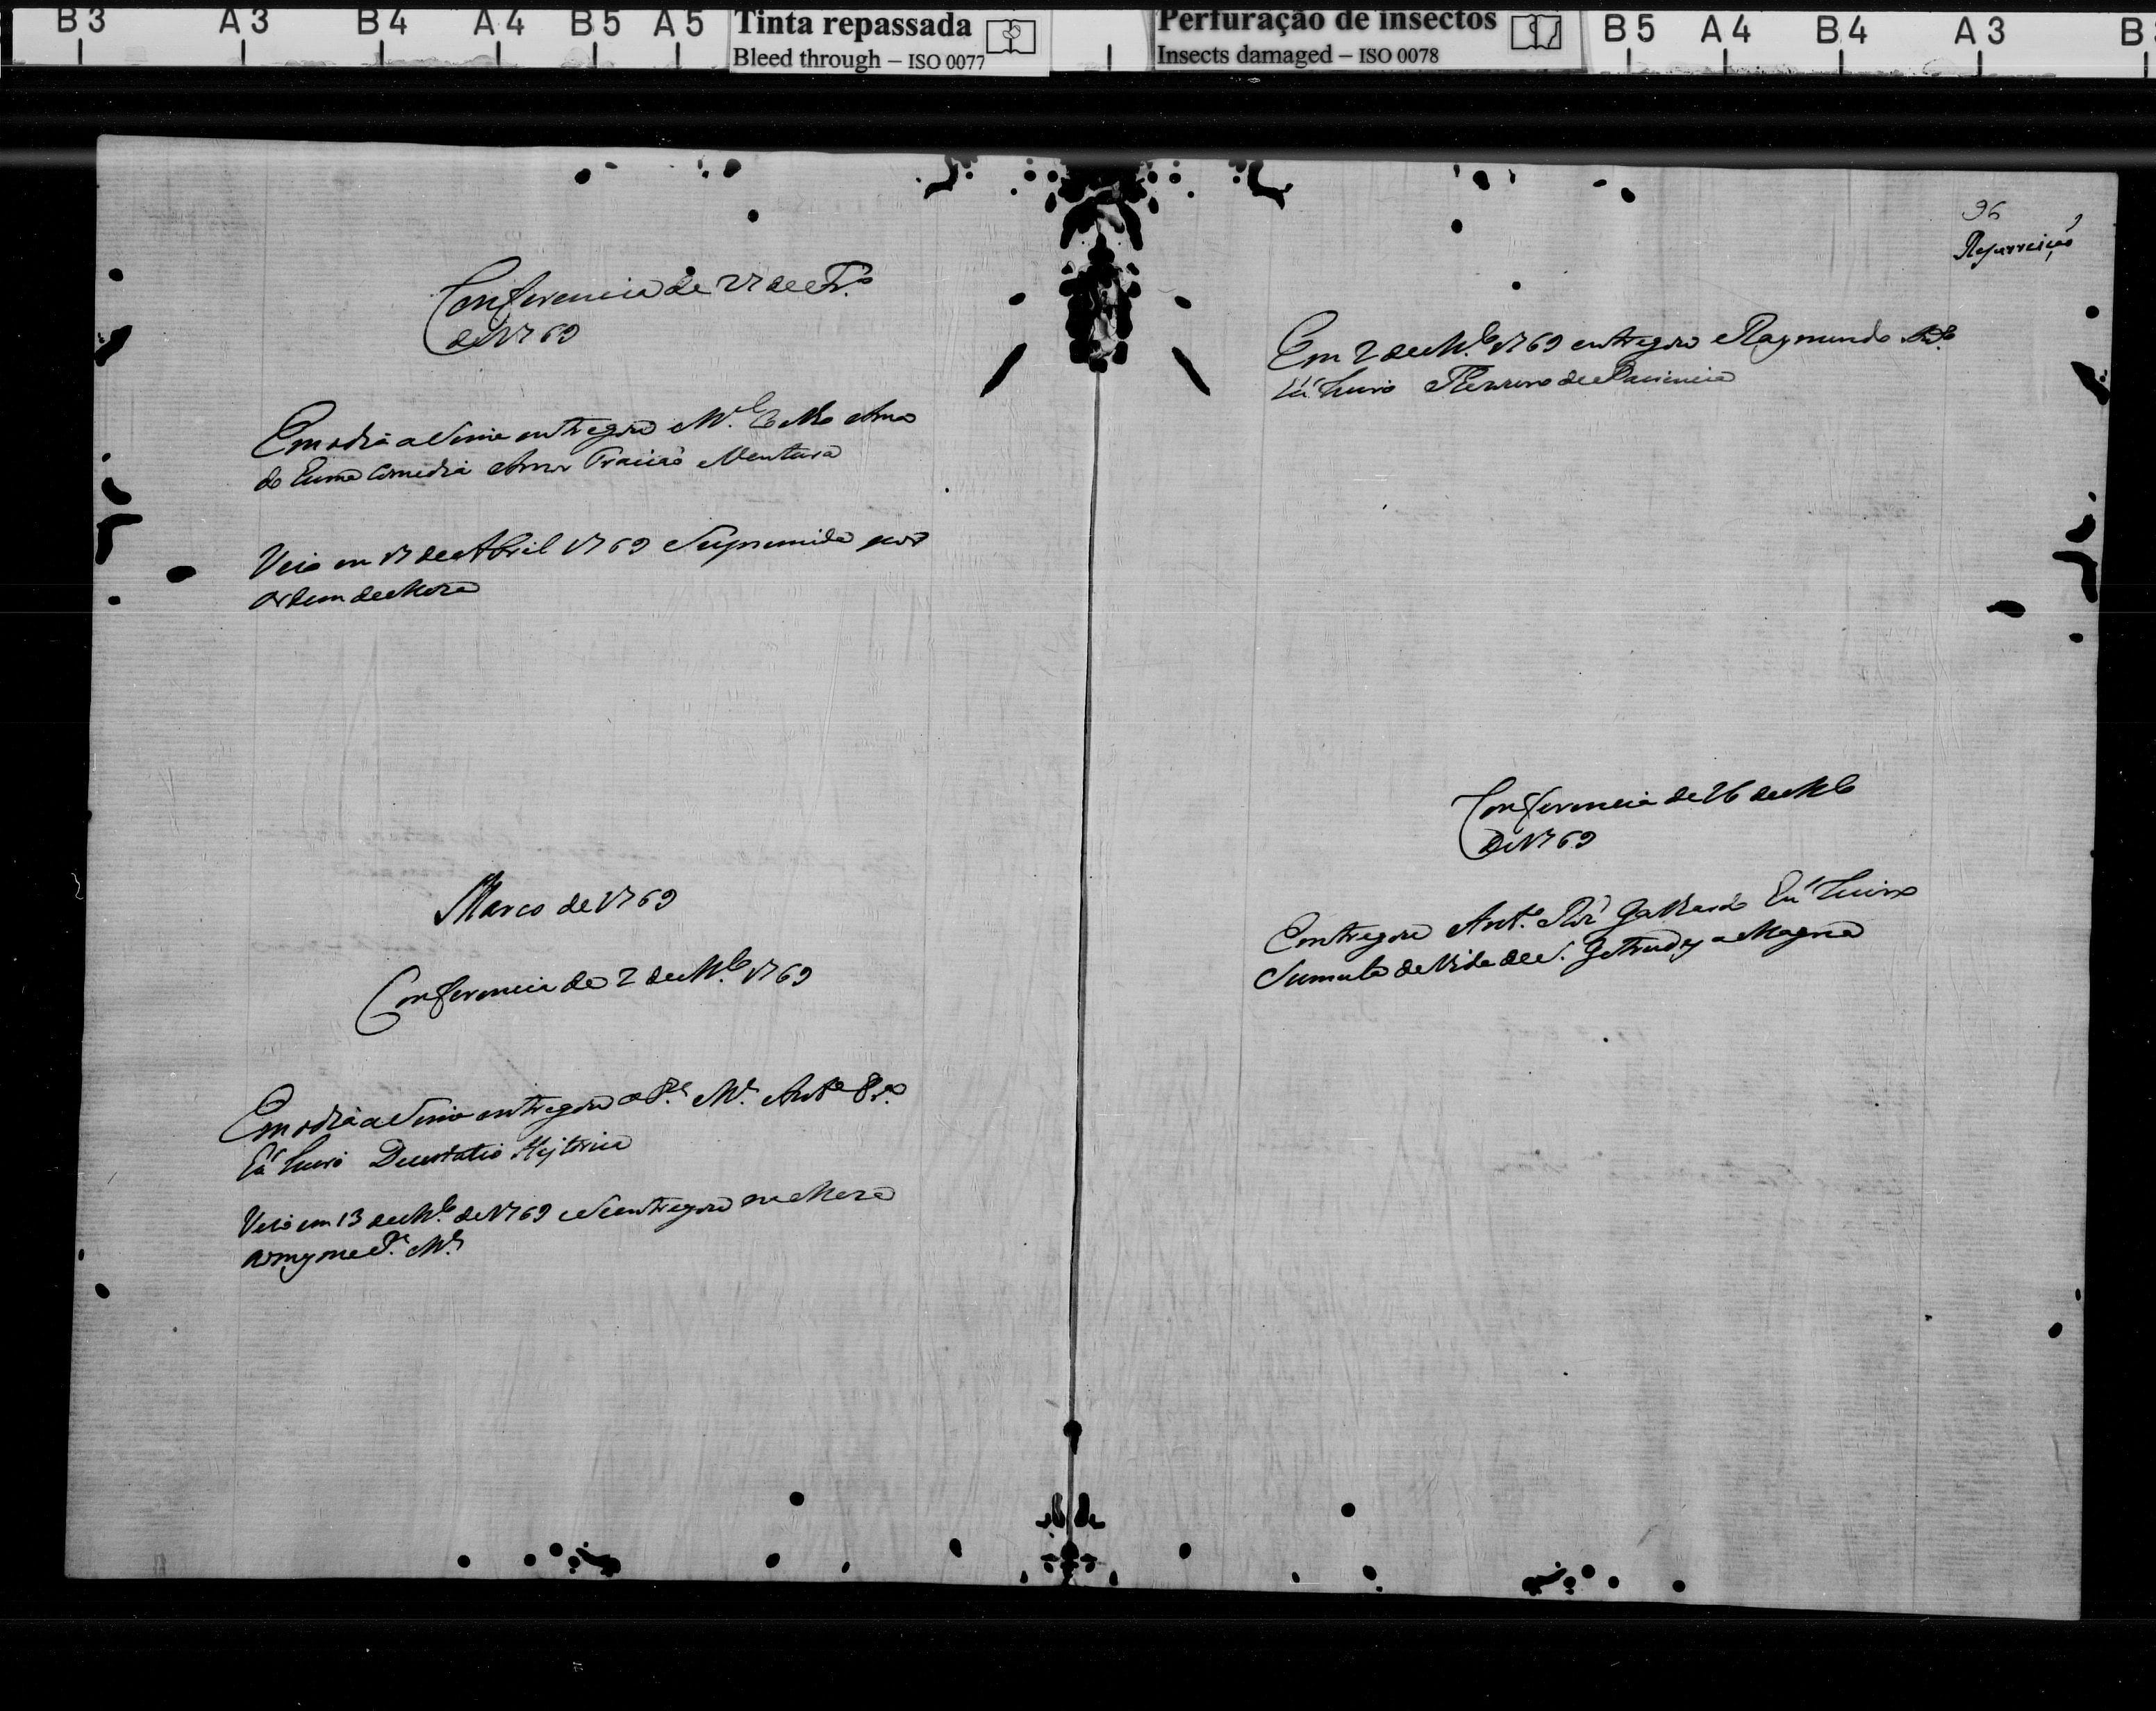 B3 A3 B4 A4 B5 A5
Tinta repassada
Bleed through – ISO 0077
Perfuração de insectos
Insects damaged – ISO 0078
B5 A4 B4 A3 B
Conferencia de 27 de Fr.o
de 1769
Em o dia a sima entregou M.el
de huma Comedia Amor Traição e Ventura
Veio em 17 de Abril 1769 Supremida por
ordem da Meza
Marco de 1769
Conferencia de 2 de M.ço 1769
Em o dia a sima entregou o P.e M.e Ant.o
hũ Livro Decertatio Hystorica
Veio em 13 de M.ço de 1769 e se entregou na Meza
ao mesmo P.e M.e
96
Resurreição
Em 2 de M.ço 1769 entregou Raymundo
hũ Livro Thezouro de Paciencia
Conferencia de 26 de M.ço
de 1769
Entregou Ant.o Roiz Galhardo hũ Livro
Sumula da Vida de S. Getrudes a Magna